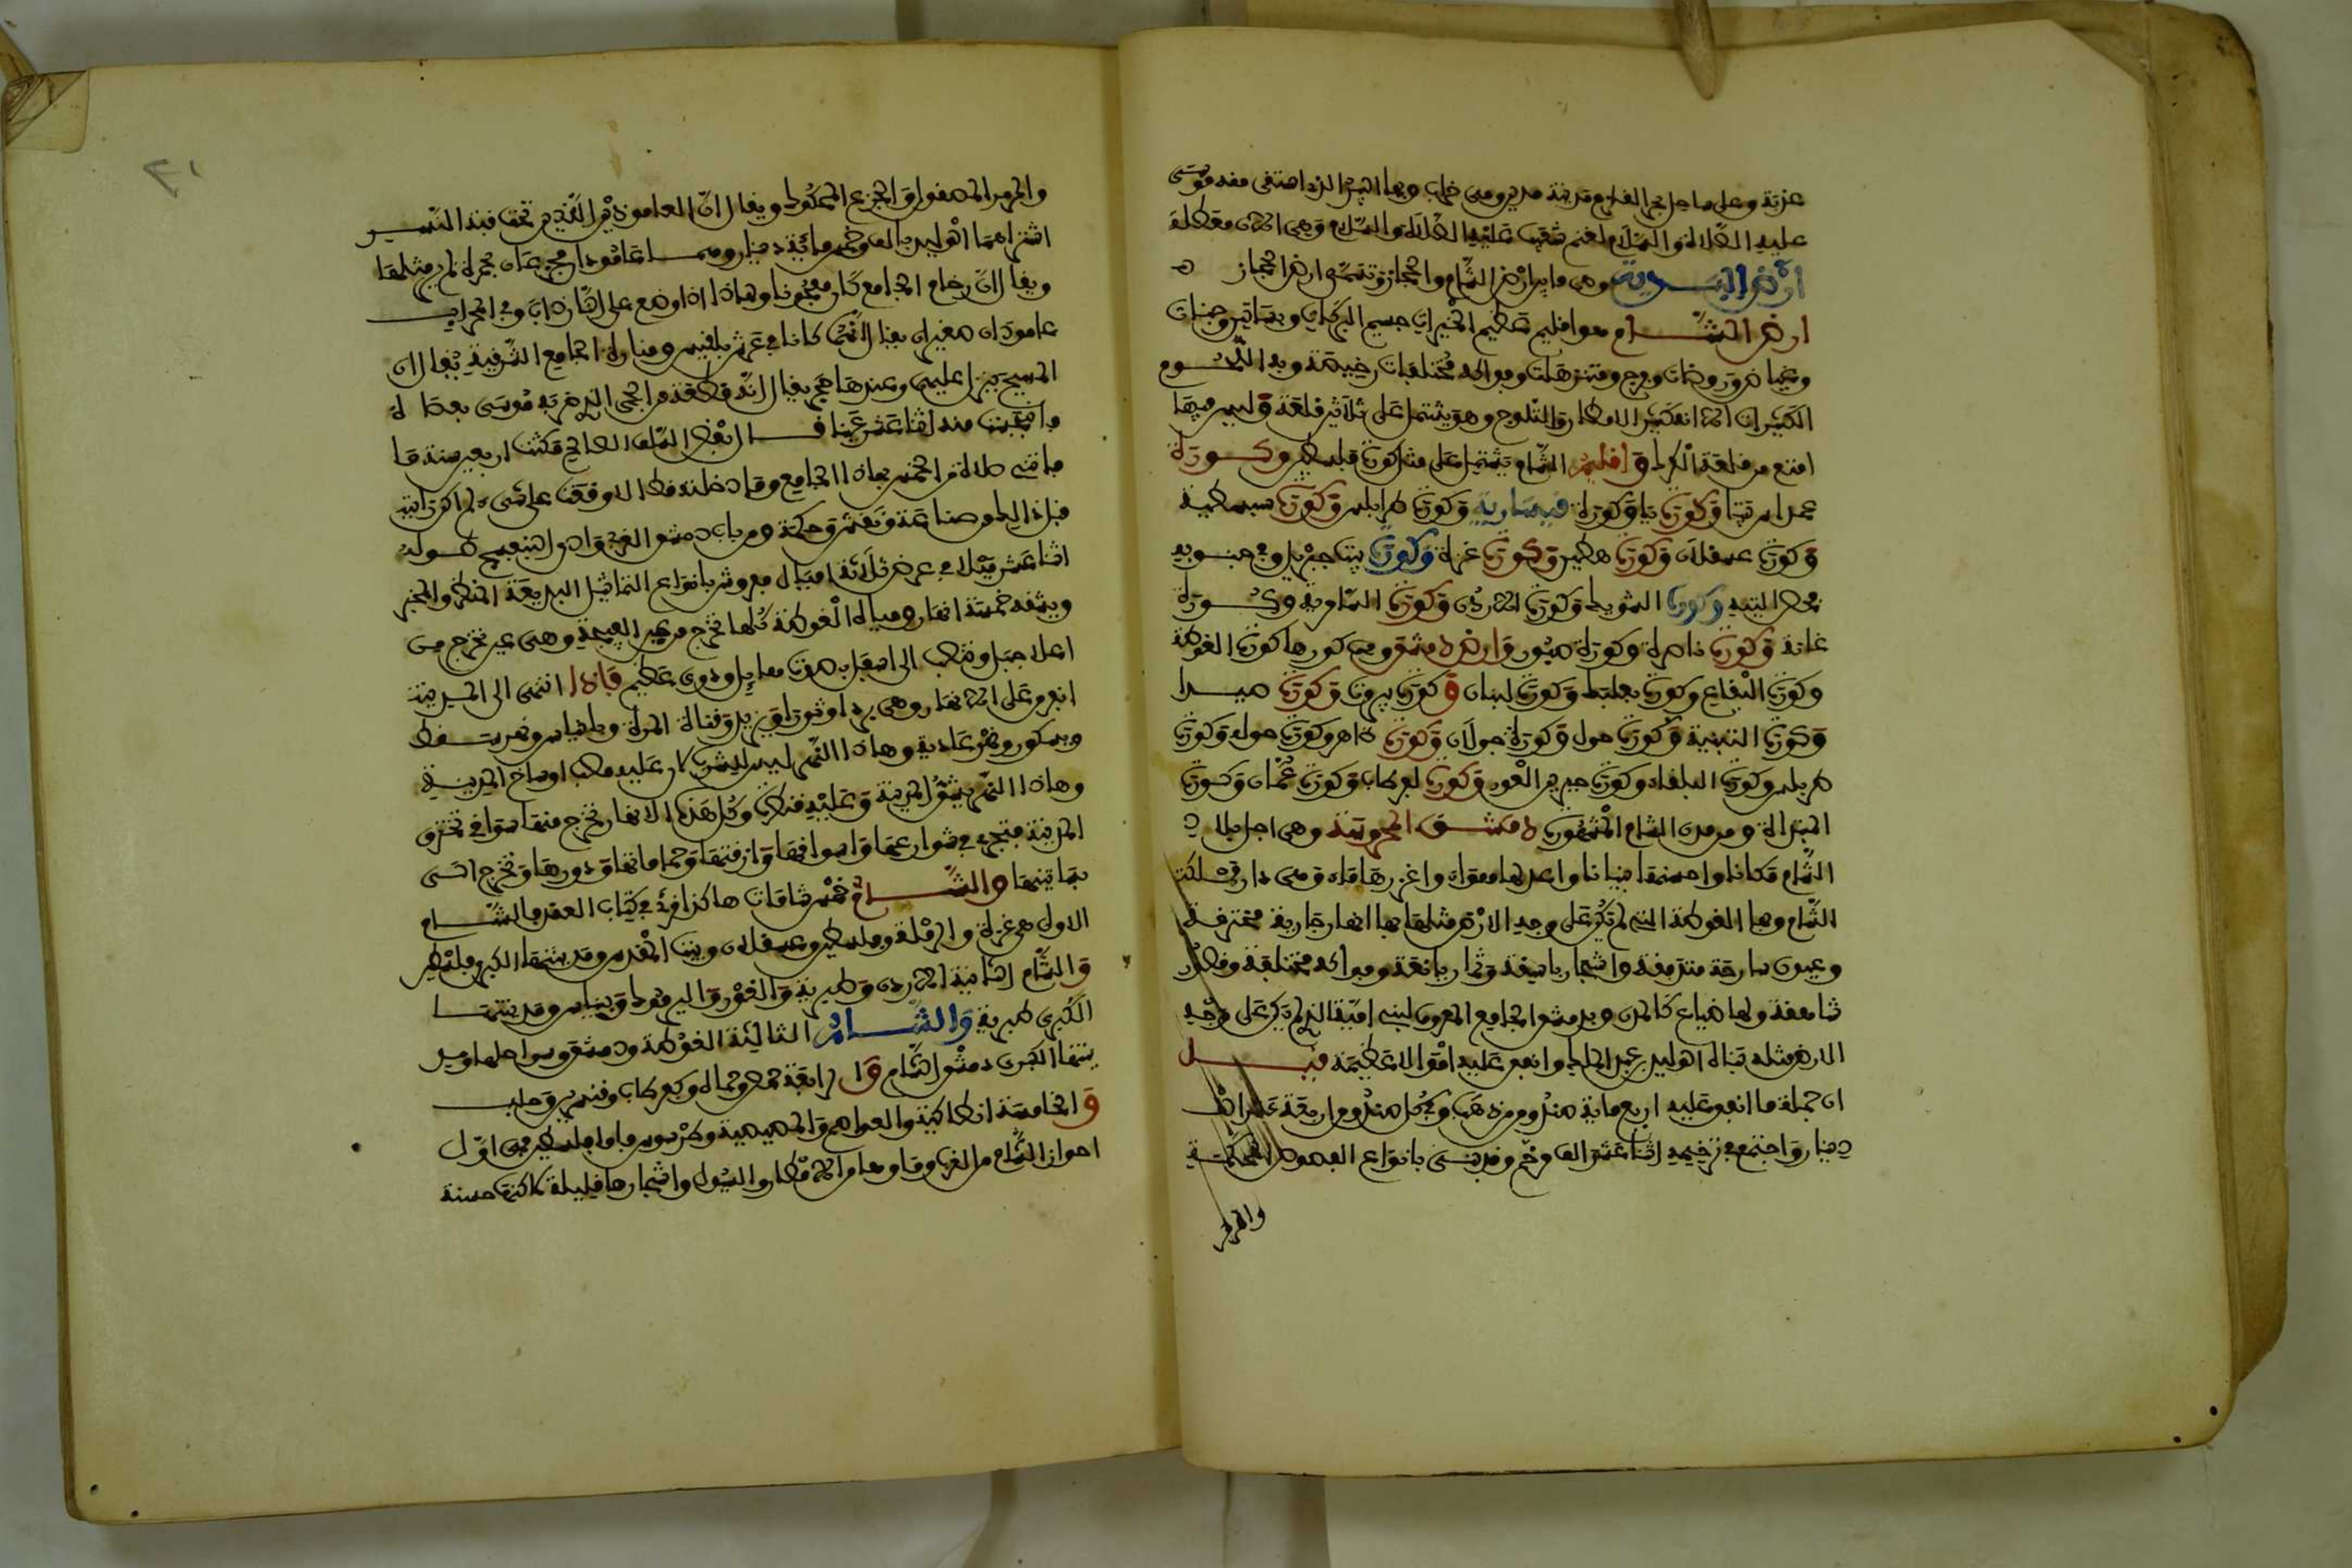 عذبة وعلى ساحل بحر القلزم مدينة مدين وهي خراب وبها البير الذي استقى منه موسى
عليه الصلاة والسلام لغنم شعيب عليه الصلاة والسلام وهي الان معطلة
ارض البادية وهي ما بين ارض الشام والحجاز وتسمى ارض الحجاز
ارض الشام هو اقليم عظيم الخيرات جسيم البركات وبساتين وجنات
وغياض وروضات وفرج ومتنزهات وفواكه مختلفات رخيصة وبه اللحوم
الكثيرات الا انه كثير الامطار والثلوج وهو يشتمل على ثلاثين قلعة وليس فيها
امنع من قلعة الكرك واقليم الشام يشتمل على مثل كورة فلسطين وكورة
عمل ايرتنا وكورة يافا وكورة قيسارية وكورة طرابلس وكورة سبسطية
وكورة عسقلان وكورة حطين وكورة غزة وكورة بيت جبريل وفي جنوبيه
فحص التيه وكورة الشويط وكورة الاردن وكورة السامرية وكورة
عانة وكورة ناصرة وكورة صور وارض دمشق ومن كورها كورة الغوطة
وكورة البقاع وكورة بعلبك وكورة لبنان وكورة بيروت وكورة صيدا
وكورة البثنية وكورة حول وكورة جولان وكورة ظاهر وكورة حوله وكورة
طرابلس وكورة البلقاء وكورة جبرين الغور وكورة كفرطاب وكورة عمان وكورة
السراة ومن مدن الشام المشهورة دمشق المحروسة وهي اجل بلاد
الشام مكانا واحسنها بنيانا واعدلها هواء واغزرها ماء وهي دار مملكة
الشام ولها الغوطة التي لم تكن على وجه الارض مثلها بها انهار جارية مخترقة
وعيون سارحة متدفقة واشجار باسقة وثمار يانعة وفواكه مختلفة وقصور
شاهقة ولها ضياع كالمدن وبدمشق الجامع المعروف لبني امية الذي لم يكن على وجه
الارض مثله بناه الوليد بن عبد الملك وانفق عليه اموالا عظيمة قيل
ان جملة ما انفق عليه اربعماية صندوق من ذهب وفي كل صندوق اربعة عشر الف
دينار واجتمع في ترخيمه اثنا عشر الف مرخم وقد بني بانواع الفصوص المحكمة
والمرمر
والمرمر المصقول والجزع المكحول ويقال ان العامودين الذين تحت قبة النسر
اشتراهما الوليد بالف وخمسماية دينار وهما عامودان مجزعان بحمرة لم ير مثلهما
ويقال ان رخام الجامع كان معجونا ولهاذا اذا وضع على النار ذاب وفي المحراب
عامودان صغيران يقال انهما كانا في عرش بلقيس ومنارة الجامع الشرقية يقال ان
المسيح ينزل عليها وعندها حجر يقال انه قطعة من الحجر الذي ضربه موسى بعصاه
وانبجست منه اثنا عشر عينا قال بعض السلف الصالح مكثت اربعين سنة ما
فاتتني صلاة من الخمس بهاذا الجامع وما دخلته قط الا ووقعت عيني على شيء لم اكن رايته
قبل ذلك من صناعة ونقش وحكمة ومن باب دمشق الغربي وادي البنفسج طوله
اثنا عشر ميلا في عرض ثلاثة اميال مفروش بانواع التماثيل البديعة المنظر والمخبر
ويشقه خمسة انهار ومياه الغوطة كلها تخرج من عين الفيجة وهي عين تخرج من
اعلا جبل وتنصب الى اسفل بصوت هايل ودوي عظيم فاذا انتهى الى المدينة
انقسم على الانهار وهي بردا وثورا ويزيد وقناة المزة وبانياس ونهر سقط
ويسكور ونهر عادية وهاذا النهر ليس للشرب لان عليه مصب اوساخ المدينة
وهاذا النهر يشق المدينة وعليه قنطرة وكل هذه الانهار تخرج منها سواقي تخترق
المدينة فتجري في شوارعها واسواقها وازقتها وحماماتها ودورها وتخرج الى
بساتينها والشام خمس شامات هاكذا في كتاب العقد فالشام
الاول هي غزة والرملة وفلسطين وعسقلان وبيت المقدس ومدينتها الكبرى فلسطين
والشام الثانية الاردن وطبرية والغور واليرموك وبيسان ومدينتها
الكبرى طبرية والشام الثالثة الغوطة ودمشق وسواحلها ومدينتها
الكبرى دمشق الشام والرابعة حمص وحماه وكفرطاب وقنسرين وحلب
والخامسة انطاكية والعواصم والمصيصة وطرسوس فاما فلسطين هي اول
احواز الشام من الغرب وماوها من الامطار والسيول واشجارها قليلة لاكنها حسنة